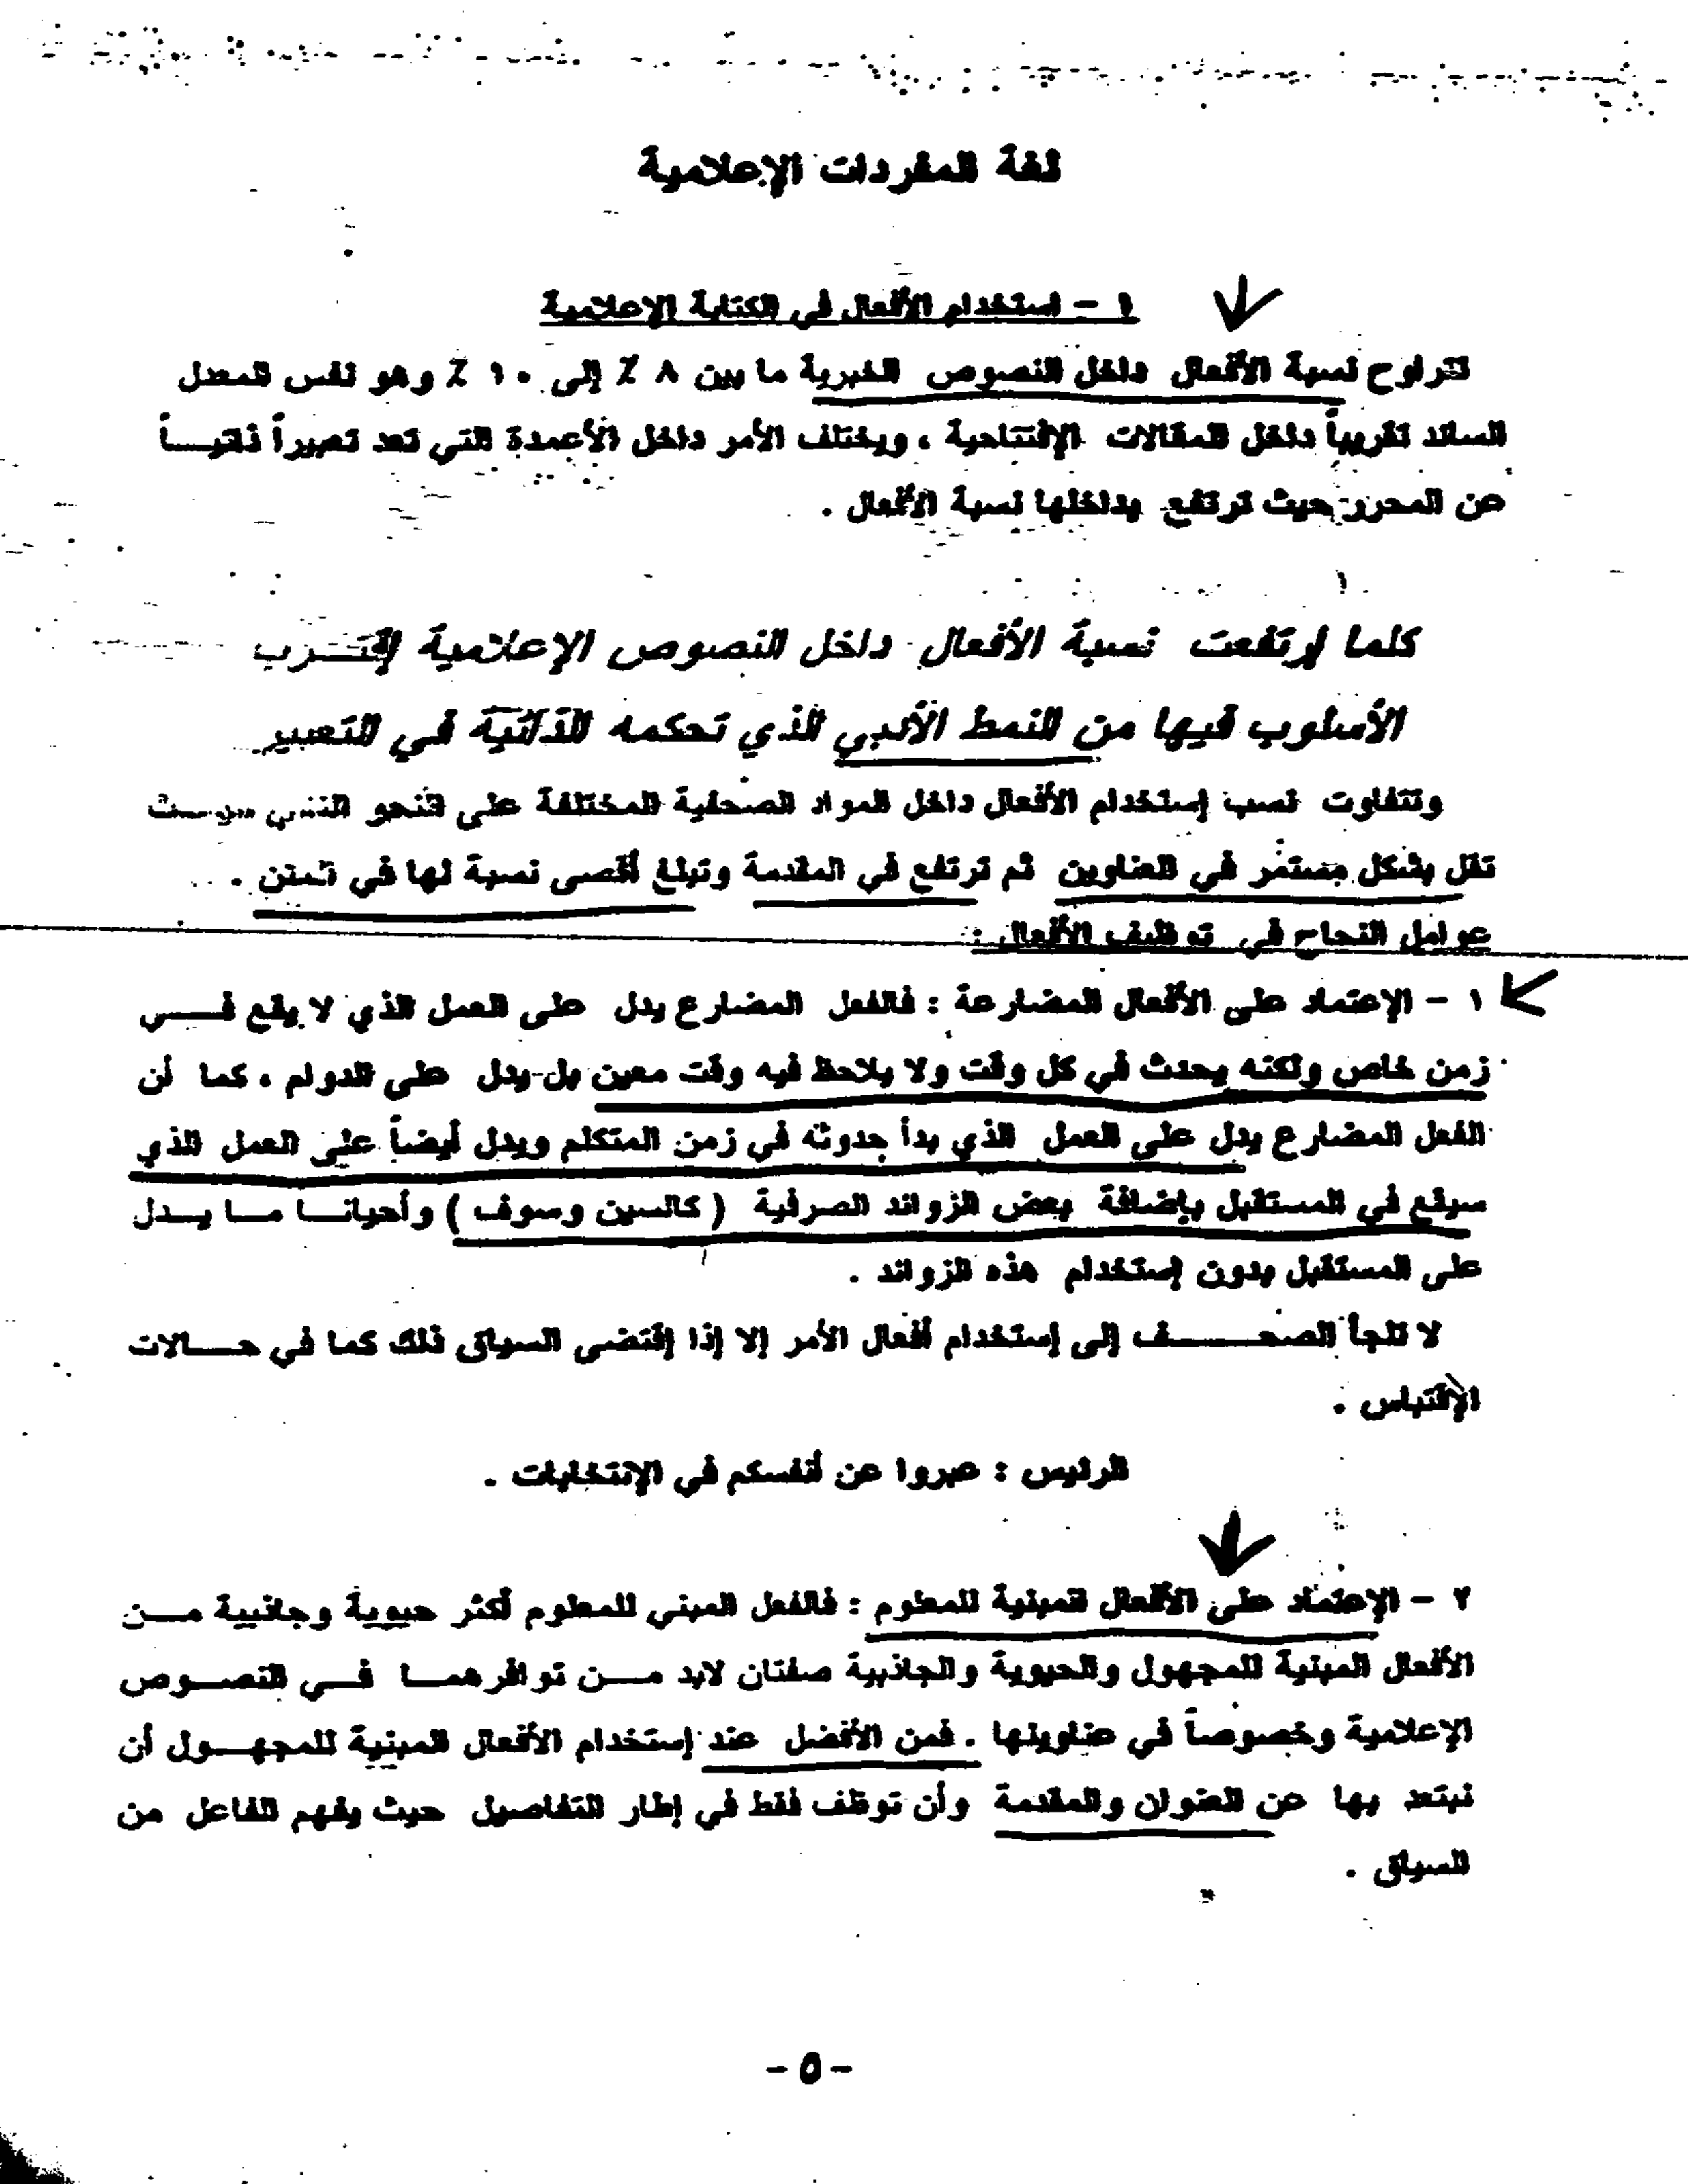 لغة المفردات الإعلامية
١ - إستخدام الأفعال في الكتابة الإعلامية
تتراوح نسبة الأفعال داخل النصوص الخبرية ما بين ٨ ٪ إلى ١٠ ٪ وهو نفس المعدل
السائد تقريباً داخل المقالات الإفتتاحية ، ويختلف الأمر داخل الأعمدة التي تعد تعبيراً ذاتيـــاً
عن المحرر حيث ترتفع بداخلها نسبة الأفعال .
كلما إرتفعت نسبة الأفعال داخل النصوص الإعلامية إقتـــرب
الأسلوب فيها من النمط الأدبي الذي تحكمه الذاتية في التعبير
وتتفاوت نسب إستخدام الأفعال داخل المواد الصحفية المختلفة على النحو
تقل بشكل مستمر في العناوين ثم ترتفع في المقدمة وتبلغ أقصى نسبة لها في المتن .
عوامل النجاح في توظيف الأفعال :
١ - الإعتماد على الأفعال المضارعة : فالفعل المضارع يدل على العمل الذي لا يقع فـــي
زمن خاص ولكنه يحدث في كل وقت ولا يلاحظ فيه وقت معين بل يدل على الدوام ، كما أن
الفعل المضارع يدل على العمل الذي بدأ حدوثه في زمن المتكلم ويدل أيضاً على العمل الذي
سيقع في المستقبل بإضافة بعض الزوائد الصرفية ( كالسين وسوف ) وأحيانــا مــا يــدل
على المستقبل بدون إستخدام هذه الزوائد .
لا تلجأ الصحـــــف إلى إستخدام أفعال الأمر إلا إذا إقتضى السياق ذلك كما في حـــالات
الإقتباس .
الرئيس : عبروا عن أنفسكم في الإنتخابات .
٢ - الإعتماد على الأفعال المبنية للمعلوم : فالفعل المبني للمعلوم أكثر حيوية وجاذبية مــن
الأفعال المبنية للمجهول والحيوية والجاذبية صفتان لابد مـــن توافرهمــا فـــي النصـــوص
الإعلامية وخصوصاً في عناوينها . فمن الأفضل عند إستخدام الأفعال المبنية للمجهـــول أن
نبتعد بها عن العنوان والمقدمة وأن توظف فقط في إطار التفاصيل حيث يفهم الفاعل من
السياق .
- ٥ -